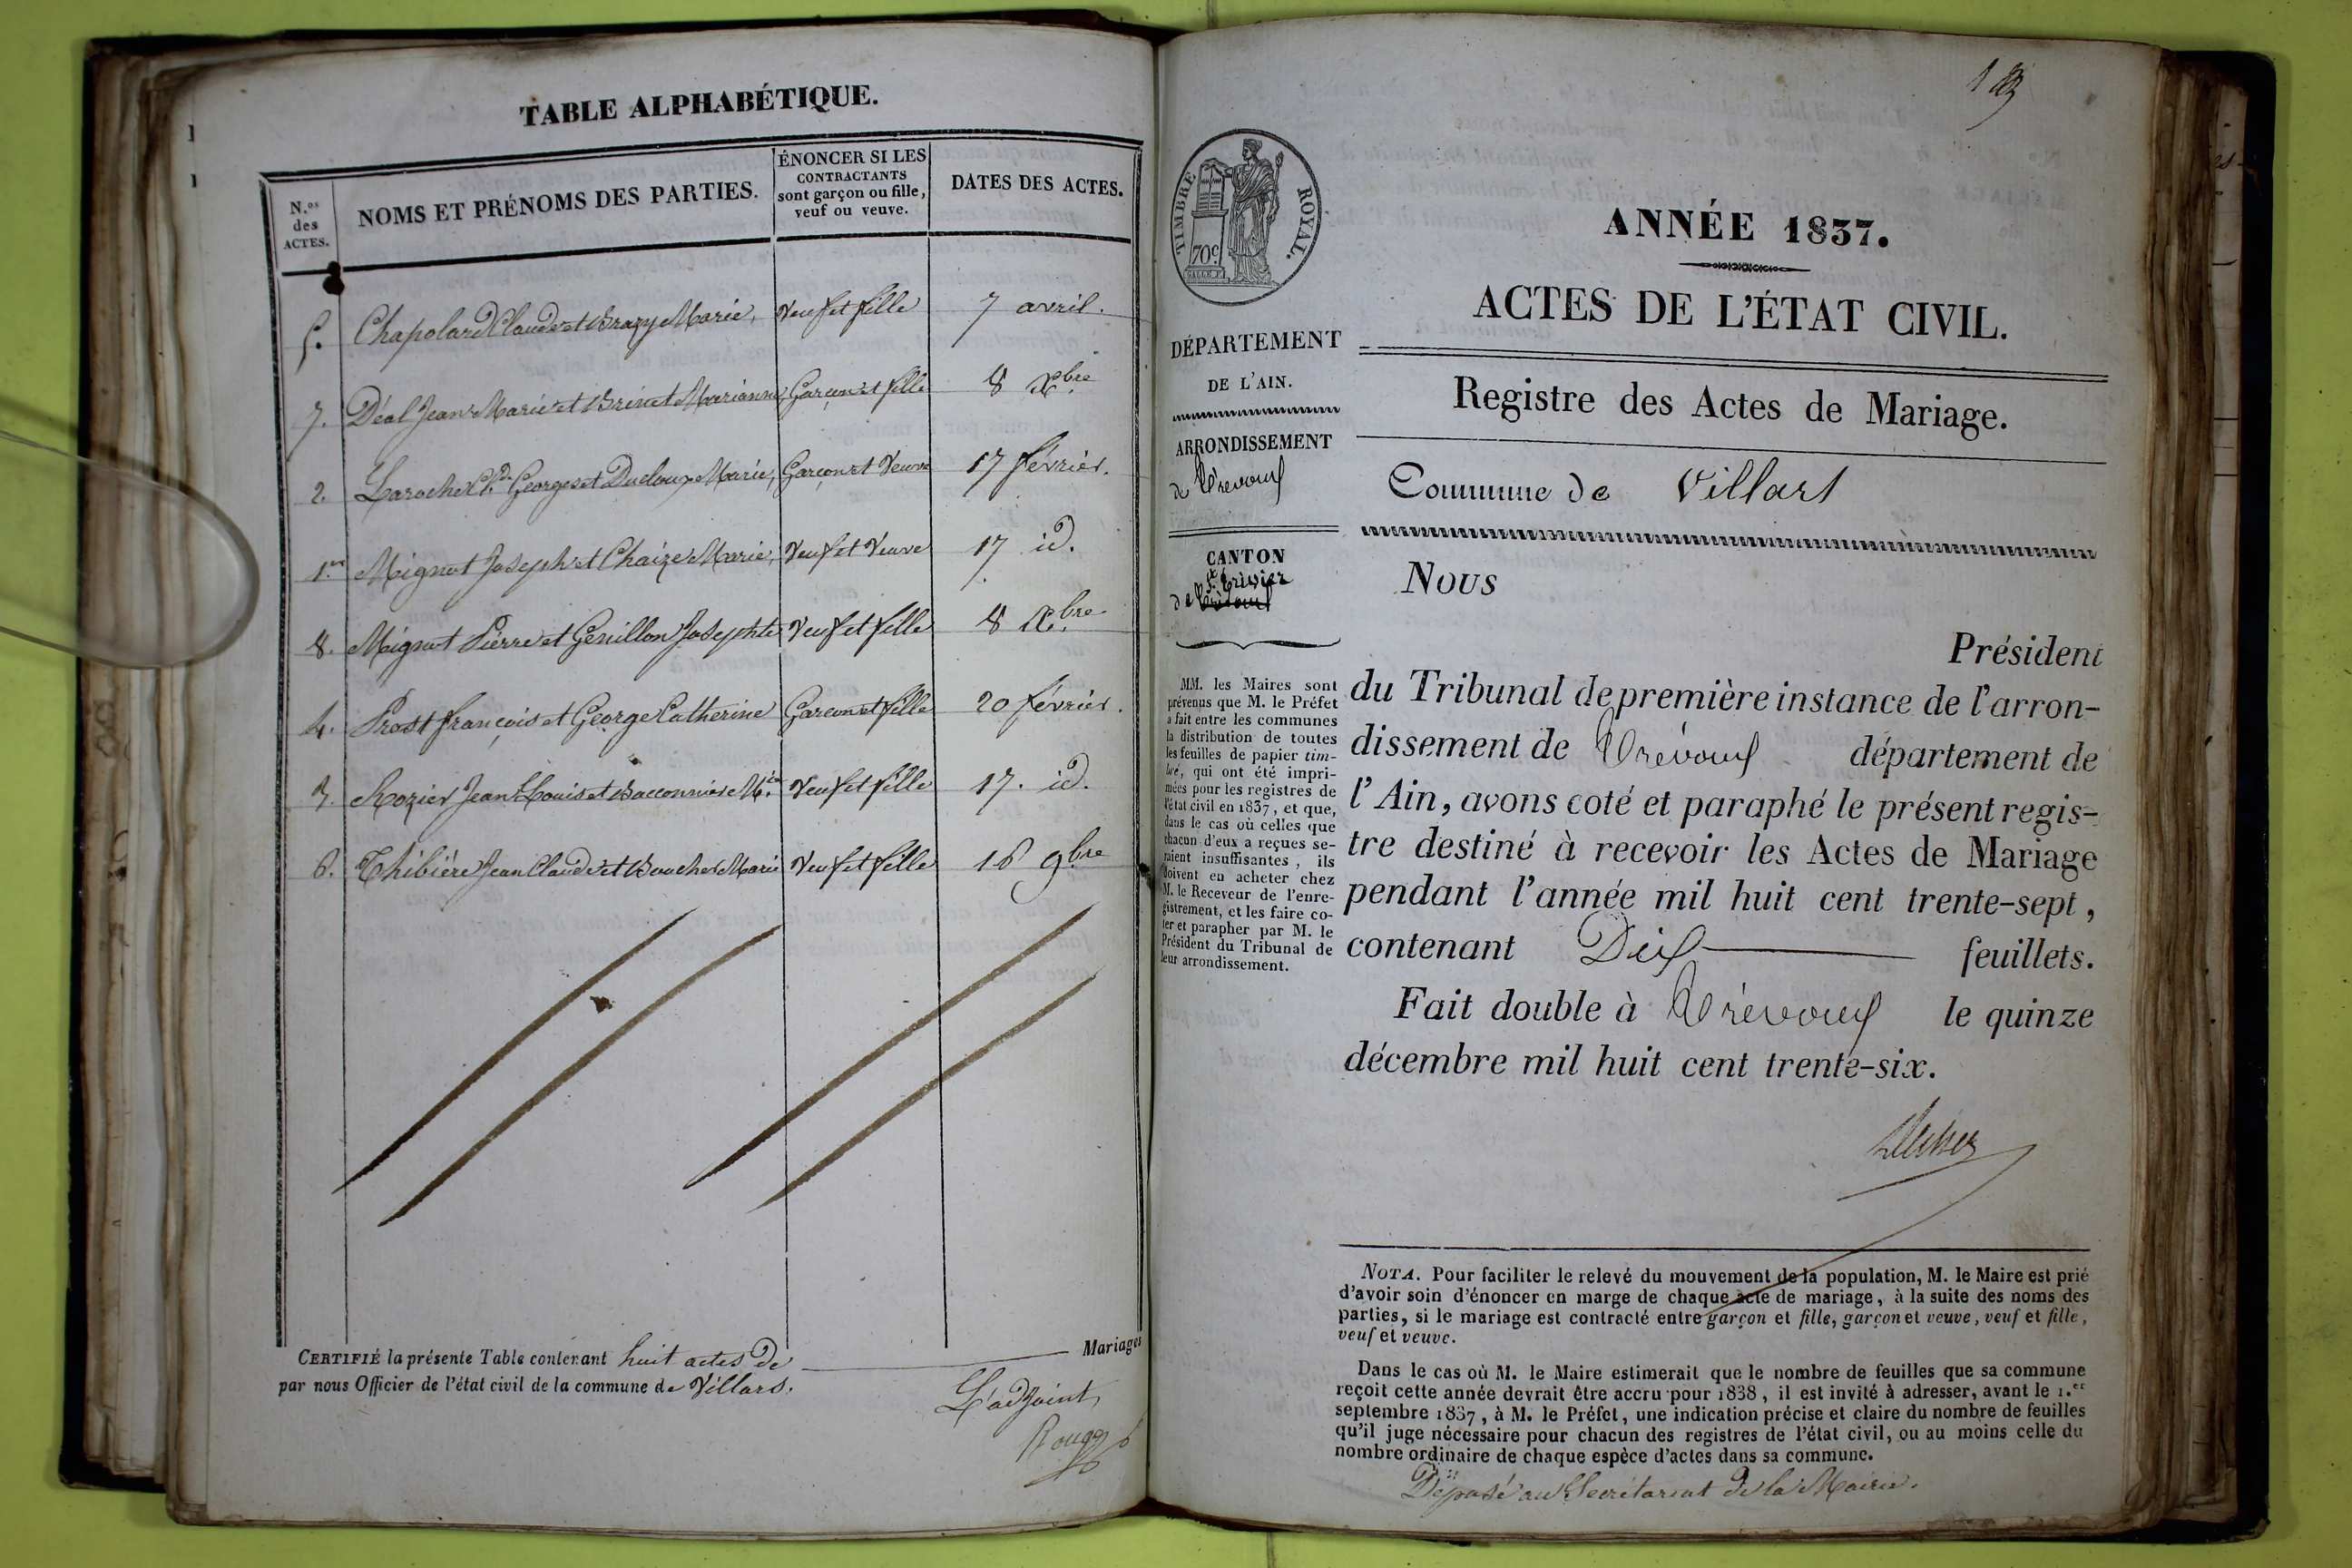 TABLE ALPHABÉTIQUE.
N.os des ACTES.
NOMS ET PRÉNOMS DES PARTIES.
ÉNONCER SI LES
CONTRACTANTS
sont garçon ou fille,
veuf ou veuve.
DATES DES ACTES.
5. Chapolard Claude et Brazy Marie, Veuf et fille 7 avril.
7. Déal Jean Marie et Brinet Marianne Garçon et fille 8 Xbre
2. Laroche Cl.de Georges et Ducloux Marie, Garçon et Veuve 17 février.
1.er Mignot Joseph et Chaize Marie, Veuf et Veuve 17 id.
8. Mignot Pierre et Genillon Josephte Veuf et fille 8 Xbre
4. Prost François et George Catherine Garçon et fille 20 février.
3. Rozier Jean Louis et Baconnier M.ie Veuf et fille 17. id.
6. Thibière Jean Claude et Boucher Marie Veuf et fille 16 9bre
CERTIFIÉ la présente Table contenant huit actes de Mariages
par nous Officier de l'état civil de la commune de Villars.
L'adjoint,
TIMBRE ROYAL.
70 c.
ANNÉE 1837.
ACTES DE L'ÉTAT CIVIL.
Registre des Actes de Mariage.
DÉPARTEMENT
DE L'AIN.
ARRONDISSEMENT
de Trévoux
CANTON
St Trivier
de
MM. les Maires sont
prévenus que M. le Préfet
a fait entre les communes
la distribution de toutes
les feuilles de papier tim-
bré, qui ont été impri-
mées pour les registres de
l'état civil en 1837, et que,
dans le cas où celles que
chacun d'eux a reçues se-
raient insuffisantes, ils
doivent en acheter chez
M. le Receveur de l'enre-
gistrement, et les faire co-
ter et parapher par M. le
Président du Tribunal de
leur arrondissement.
Commune de Villars
Nous
Président
du Tribunal de première instance de l'arron-
dissement de Trévoux département de
l'Ain, avons coté et paraphé le présent regis-
tre destiné à recevoir les Actes de Mariage
pendant l'année mil huit cent trente-sept,
contenant Dix feuillets.
Fait double à Trévoux le quinze
décembre mil huit cent trente-six.
NOTA. Pour faciliter le relevé du mouvement de la population, M. le Maire est prié
d'avoir soin d'énoncer en marge de chaque acte de mariage, à la suite des noms des
parties, si le mariage est contracté entre garçon et fille, garçon et veuve, veuf et fille,
veuf et veuve.
Dans le cas où M. le Maire estimerait que le nombre de feuilles que sa commune
reçoit cette année devrait être accru pour 1838, il est invité à adresser, avant le 1.er
septembre 1837, à M. le Préfet, une indication précise et claire du nombre de feuilles
qu'il juge nécessaire pour chacun des registres de l'état civil, ou au moins celle du
nombre ordinaire de chaque espèce d'actes dans sa commune.
Déposé au Secrétariat de la Mairie.